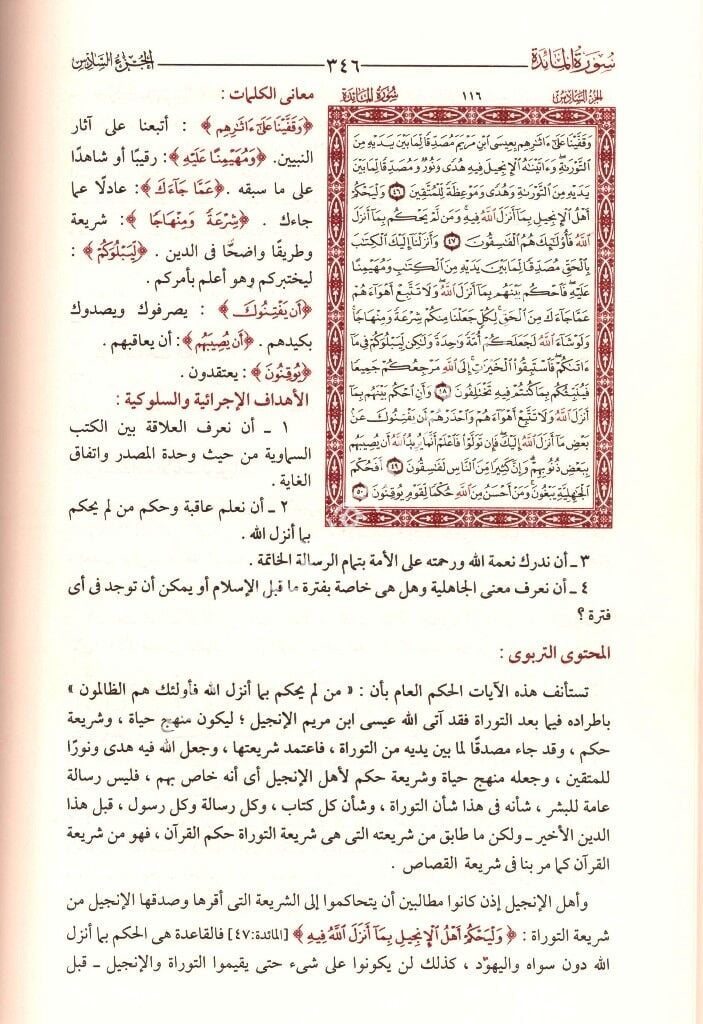 سورة المائدة ٣٤٦ الجزء السادس
الجزء السادس ١١٦ سورة المائدة
وَقَفَّيْنَا عَلَىٰٓ ءَاثَٰرِهِم بِعِيسَى ٱبْنِ مَرْيَمَ مُصَدِّقًا لِّمَا بَيْنَ يَدَيْهِ مِنَ
ٱلتَّوْرَىٰةِ وَءَاتَيْنَٰهُ ٱلْإِنجِيلَ فِيهِ هُدًى وَنُورٌ وَمُصَدِّقًا لِّمَا بَيْنَ
يَدَيْهِ مِنَ ٱلتَّوْرَىٰةِ وَهُدًى وَمَوْعِظَةً لِّلْمُتَّقِينَ ٤٦ وَلْيَحْكُمْ
أَهْلُ ٱلْإِنجِيلِ بِمَآ أَنزَلَ ٱللَّهُ فِيهِ وَمَن لَّمْ يَحْكُم بِمَآ أَنزَلَ
ٱللَّهُ فَأُو۟لَٰٓئِكَ هُمُ ٱلْفَٰسِقُونَ ٤٧ وَأَنزَلْنَآ إِلَيْكَ ٱلْكِتَٰبَ
بِٱلْحَقِّ مُصَدِّقًا لِّمَا بَيْنَ يَدَيْهِ مِنَ ٱلْكِتَٰبِ وَمُهَيْمِنًا
عَلَيْهِ فَٱحْكُم بَيْنَهُم بِمَآ أَنزَلَ ٱللَّهُ وَلَا تَتَّبِعْ أَهْوَآءَهُمْ
عَمَّا جَآءَكَ مِنَ ٱلْحَقِّ لِكُلٍّ جَعَلْنَا مِنكُمْ شِرْعَةً وَمِنْهَاجًا
وَلَوْ شَآءَ ٱللَّهُ لَجَعَلَكُمْ أُمَّةً وَٰحِدَةً وَلَٰكِن لِّيَبْلُوَكُمْ فِى مَآ
ءَاتَىٰكُمْ فَٱسْتَبِقُوا۟ ٱلْخَيْرَٰتِ إِلَى ٱللَّهِ مَرْجِعُكُمْ جَمِيعًا
فَيُنَبِّئُكُم بِمَا كُنتُمْ فِيهِ تَخْتَلِفُونَ ٤٨ وَأَنِ ٱحْكُم بَيْنَهُم بِمَآ
أَنزَلَ ٱللَّهُ وَلَا تَتَّبِعْ أَهْوَآءَهُمْ وَٱحْذَرْهُمْ أَن يَفْتِنُوكَ عَنۢ
بَعْضِ مَآ أَنزَلَ ٱللَّهُ إِلَيْكَ فَإِن تَوَلَّوْا۟ فَٱعْلَمْ أَنَّمَا يُرِيدُ ٱللَّهُ أَن يُصِيبَهُم
بِبَعْضِ ذُنُوبِهِمْ وَإِنَّ كَثِيرًا مِّنَ ٱلنَّاسِ لَفَٰسِقُونَ ٤٩ أَفَحُكْمَ
ٱلْجَٰهِلِيَّةِ يَبْغُونَ وَمَنْ أَحْسَنُ مِنَ ٱللَّهِ حُكْمًا لِّقَوْمٍ يُوقِنُونَ ٥٠
معانى الكلمات :
﴿وَقَفَّيْنَا عَلَىٰٓ ءَاثَٰرِهِم﴾ : أتبعنا على آثار
النبيين. ﴿وَمُهَيْمِنًا عَلَيْهِ﴾: رقيبًا أو شاهدًا
على ما سبقه . ﴿عَمَّا جَآءَكَ﴾: عادلًا عما
جاءك . ﴿شِرْعَةً وَمِنْهَاجًا﴾: شريعة
وطريقًا واضحًا فى الدين . ﴿لِّيَبْلُوَكُمْ﴾ :
ليختبركم وهو أعلم بأمركم .
﴿أَن يَفْتِنُوكَ﴾ : يصرفوك ويصدوك
بكيدهم . ﴿أَن يُصِيبَهُم﴾: أن يعاقبهم .
﴿يُوقِنُونَ﴾ : يعتقدون .
الأهداف الإجرائية والسلوكية :
١ ـ أن نعرف العلاقة بين الكتب
السماوية من حيث وحدة المصدر واتفاق
الغاية .
٢ ـ أن نعلم عاقبة وحكم من لم يحكم
بما أنزل الله .
٣ ـ أن ندرك نعمة الله ورحمته على الأمة بتمام الرسالة الخاتمة .
٤ ـ أن نعرف معنى الجاهلية وهل هى خاصة بفترة ما قبل الإسلام أو يمكن أن توجد فى أى
فترة ؟
المحتوى التربوى :
تستأنف هذه الآيات الحكم العام بأن : « من لم يحكم بما أنزل الله فأولئك هم الظالمون »
باطراده فيما بعد التوراة فقد آتى الله عيسى ابن مريم الإنجيل ؛ ليكون منهج حياة ، وشريعة
حكم ، وقد جاء مصدقًا لما بين يديه من التوراة ، فاعتمد شريعتها ، وجعل الله فيه هدى ونورًا
للمتقين ، وجعله منهج حياة وشريعة حكم لأهل الإنجيل أى أنه خاص بهم ، فليس رسالة
عامة للبشر ، شأنه فى هذا شأن التوراة ، وشأن كل كتاب ، وكل رسالة وكل رسول ، قبل هذا
الدين الأخير ـ ولكن ما طابق من شريعته التى هى شريعة التوراة حكم القرآن ، فهو من شريعة
القرآن كما مر بنا فى شريعة القصاص .
وأهل الإنجيل إذن كانوا مطالبين أن يتحاكموا إلى الشريعة التى أقرها وصدقها الإنجيل من
شريعة التوراة : ﴿وَلْيَحْكُمْ أَهْلُ ٱلْإِنجِيلِ بِمَآ أَنزَلَ ٱللَّهُ فِيهِ﴾ [المائدة:٤٧] فالقاعدة هى الحكم بما أنزل
الله دون سواه واليهود ، كذلك لن يكونوا على شىء حتى يقيموا التوراة والإنجيل ـ قبل